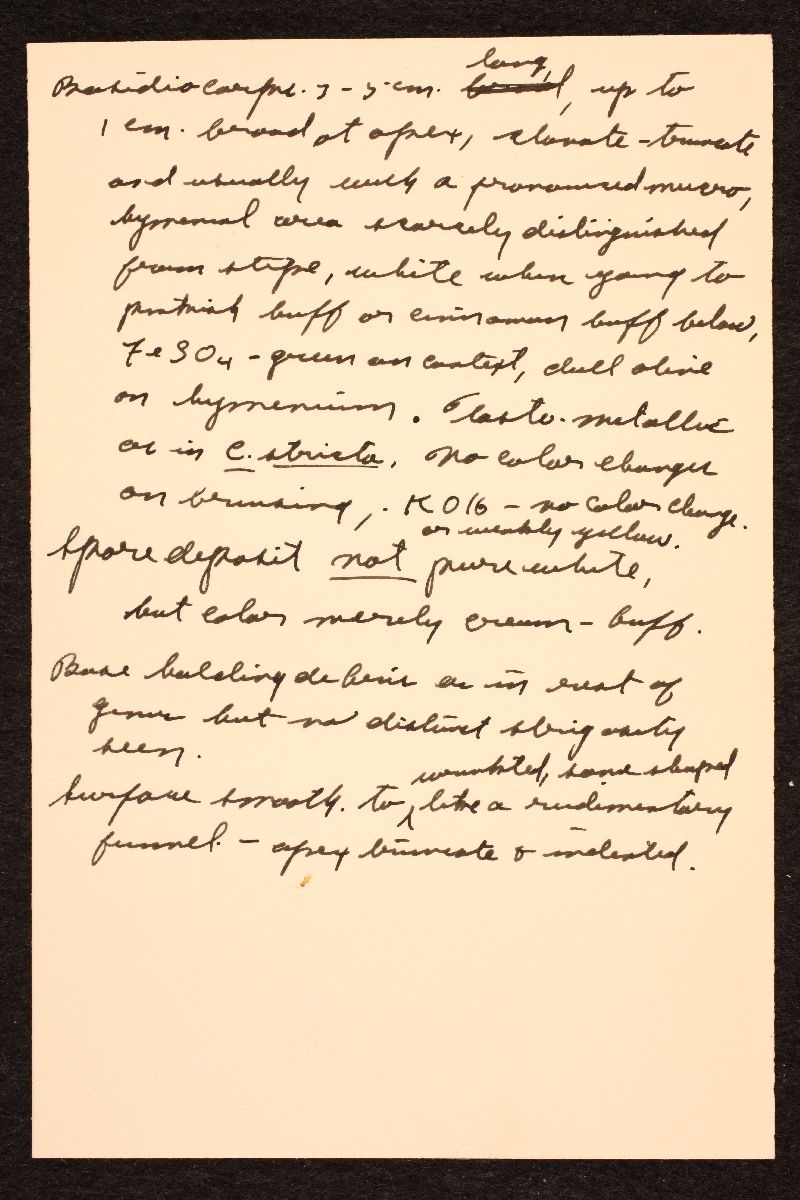 Basidiocarps. 3-5 cm. broad long, up to
1 cm. broad at apex, clavate-truncate
and usually with a pronounced mucro,
hymenial area scarcely distinguished
from stipe, white when young to
pinkish buff or cinnamon buff below,
FeSO4 - green on context, dull olive
on hymenium. Taste. metallic
as in C. stricta. No color changes
on bruising,. KOH - no color change.
or weakly yellow.
Spore deposit not pure white,
but color merely cream-buff.
Base holding debris as in rest of
genus but no distinct strigosity
seen.
wrinkled, some shaped
Surface smooth. to like a rudimentary
funnel. - apex truncate & indented.